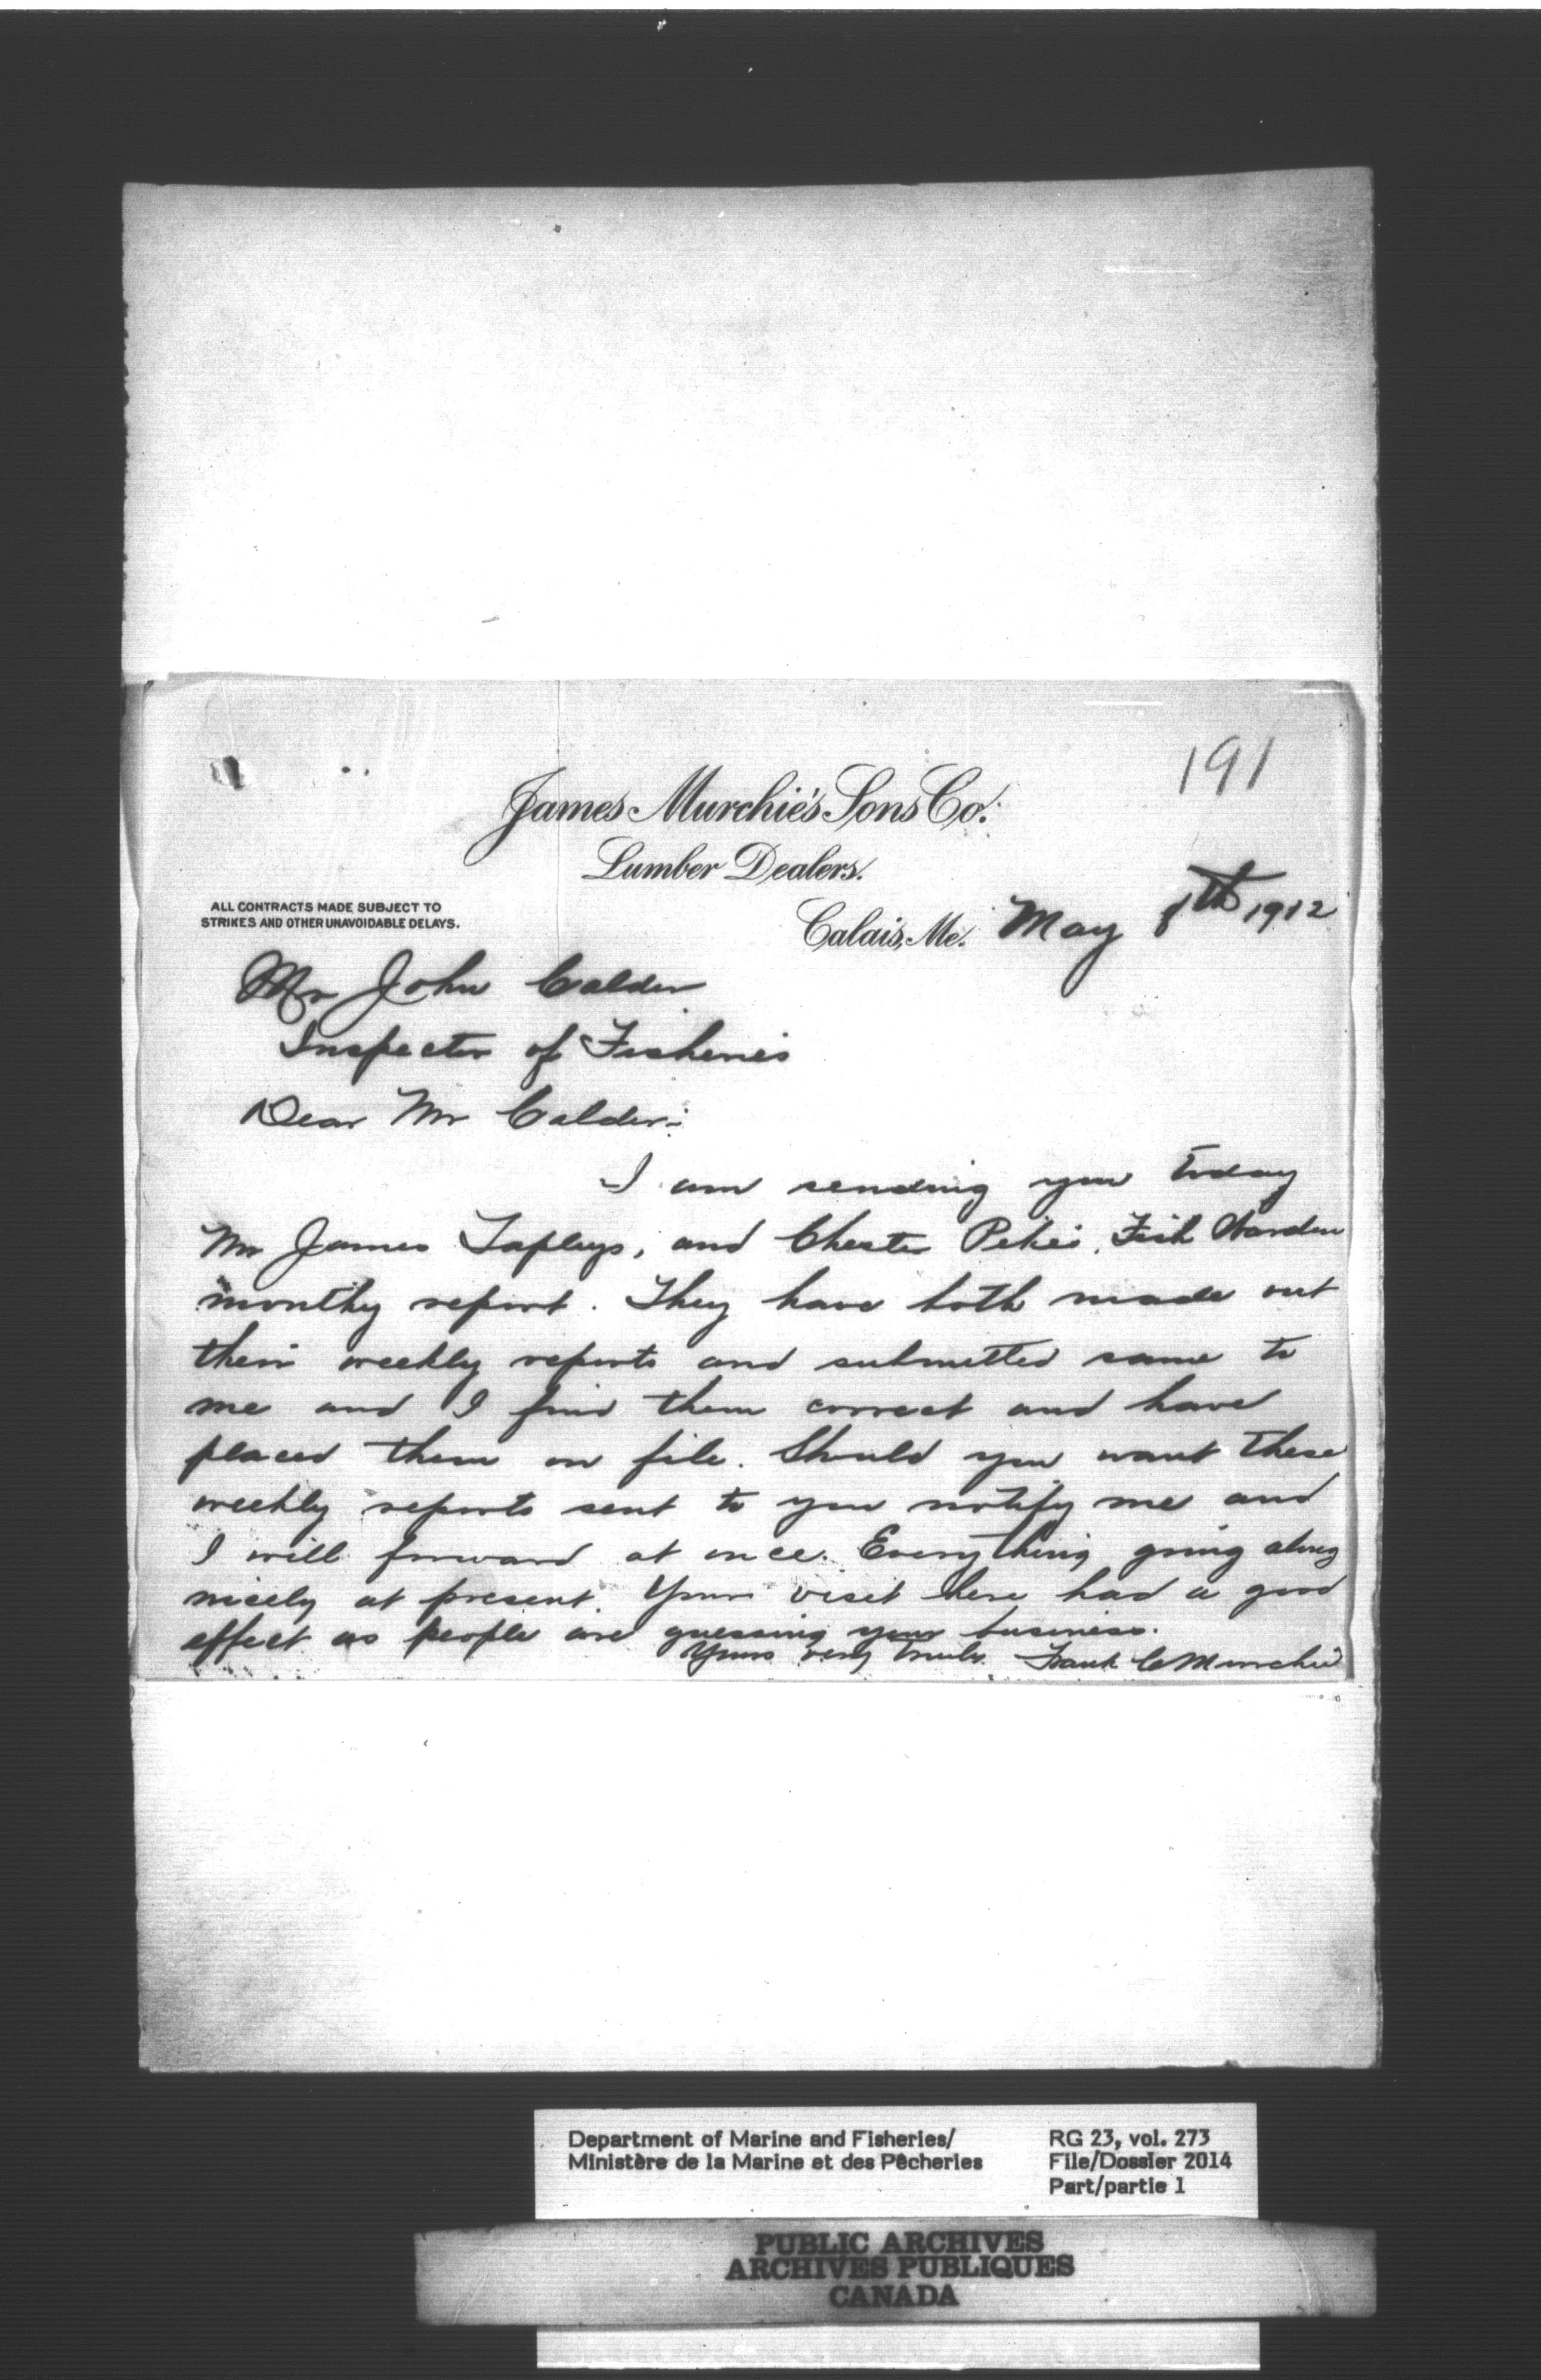 191
James Murchie's Sons Co.
Lumber Dealers.
ALL CONTRACTS MADE SUBJECT TO
STRIKES AND OTHER UNAVOIDABLE DELAYS.
Calais, Me. May 8th 1912
Mr John Calder
Inspector of Fisheries
Dear Mr Calder:
I am sending you today
Mr James Tapleys, and Chester Pikes, Fish Warden
monthy report. They have both made out
their weekly reports and submitted same to
me and I find them correct and have
placed them on file. Should you want these
weekly reports sent to you notify me and
I will forward at once. Everything going along
nicely at present. Your visit here had a good
effect as people are guessing your business.
Yours very truly Frank C Murchie
Department of Marine and Fisheries/
Ministère de la Marine et des Pêcheries
RG 23, vol. 273
File/Dossier 2014
Part/partie 1
PUBLIC ARCHIVES
ARCHIVES PUBLIQUES
CANADA